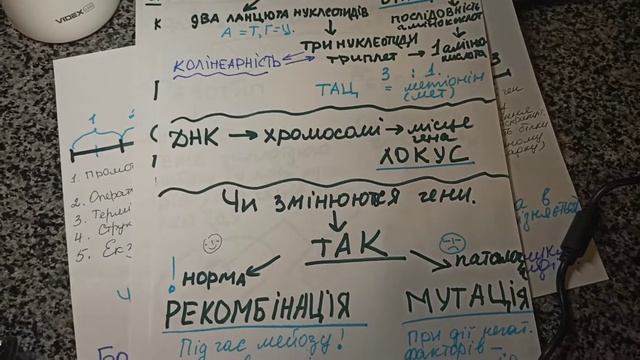 VIDEX
ДВА ЛАНЦЮГА НУКЛЕОТИДІВ
А = Т, Г = Ц.
ПОСЛІДОВНІСТЬ
АМІНОКИСЛОТ
К
ТРИ НУКЛЕОТИДИ
ТРИПЛЕТ → 1 АМІНО-
КИСЛОТА
КОЛІНЕАРНІСТЬ
3 : 1.
ТАЦ = метіонін
(мет)
ДНК → ХРОМОСОМІ → МІСЦЕ
гена
ЛОКУС
Чи змінюются гени.
ТАК
! норма
РЕКОМБІНАЦІЯ
МУТАЦІЯ
Під час мейозу!
При дії негат.
факторів –
1
1. Промот
2. Операт
3. Термі
4. Струк
5. Ек
3
ген